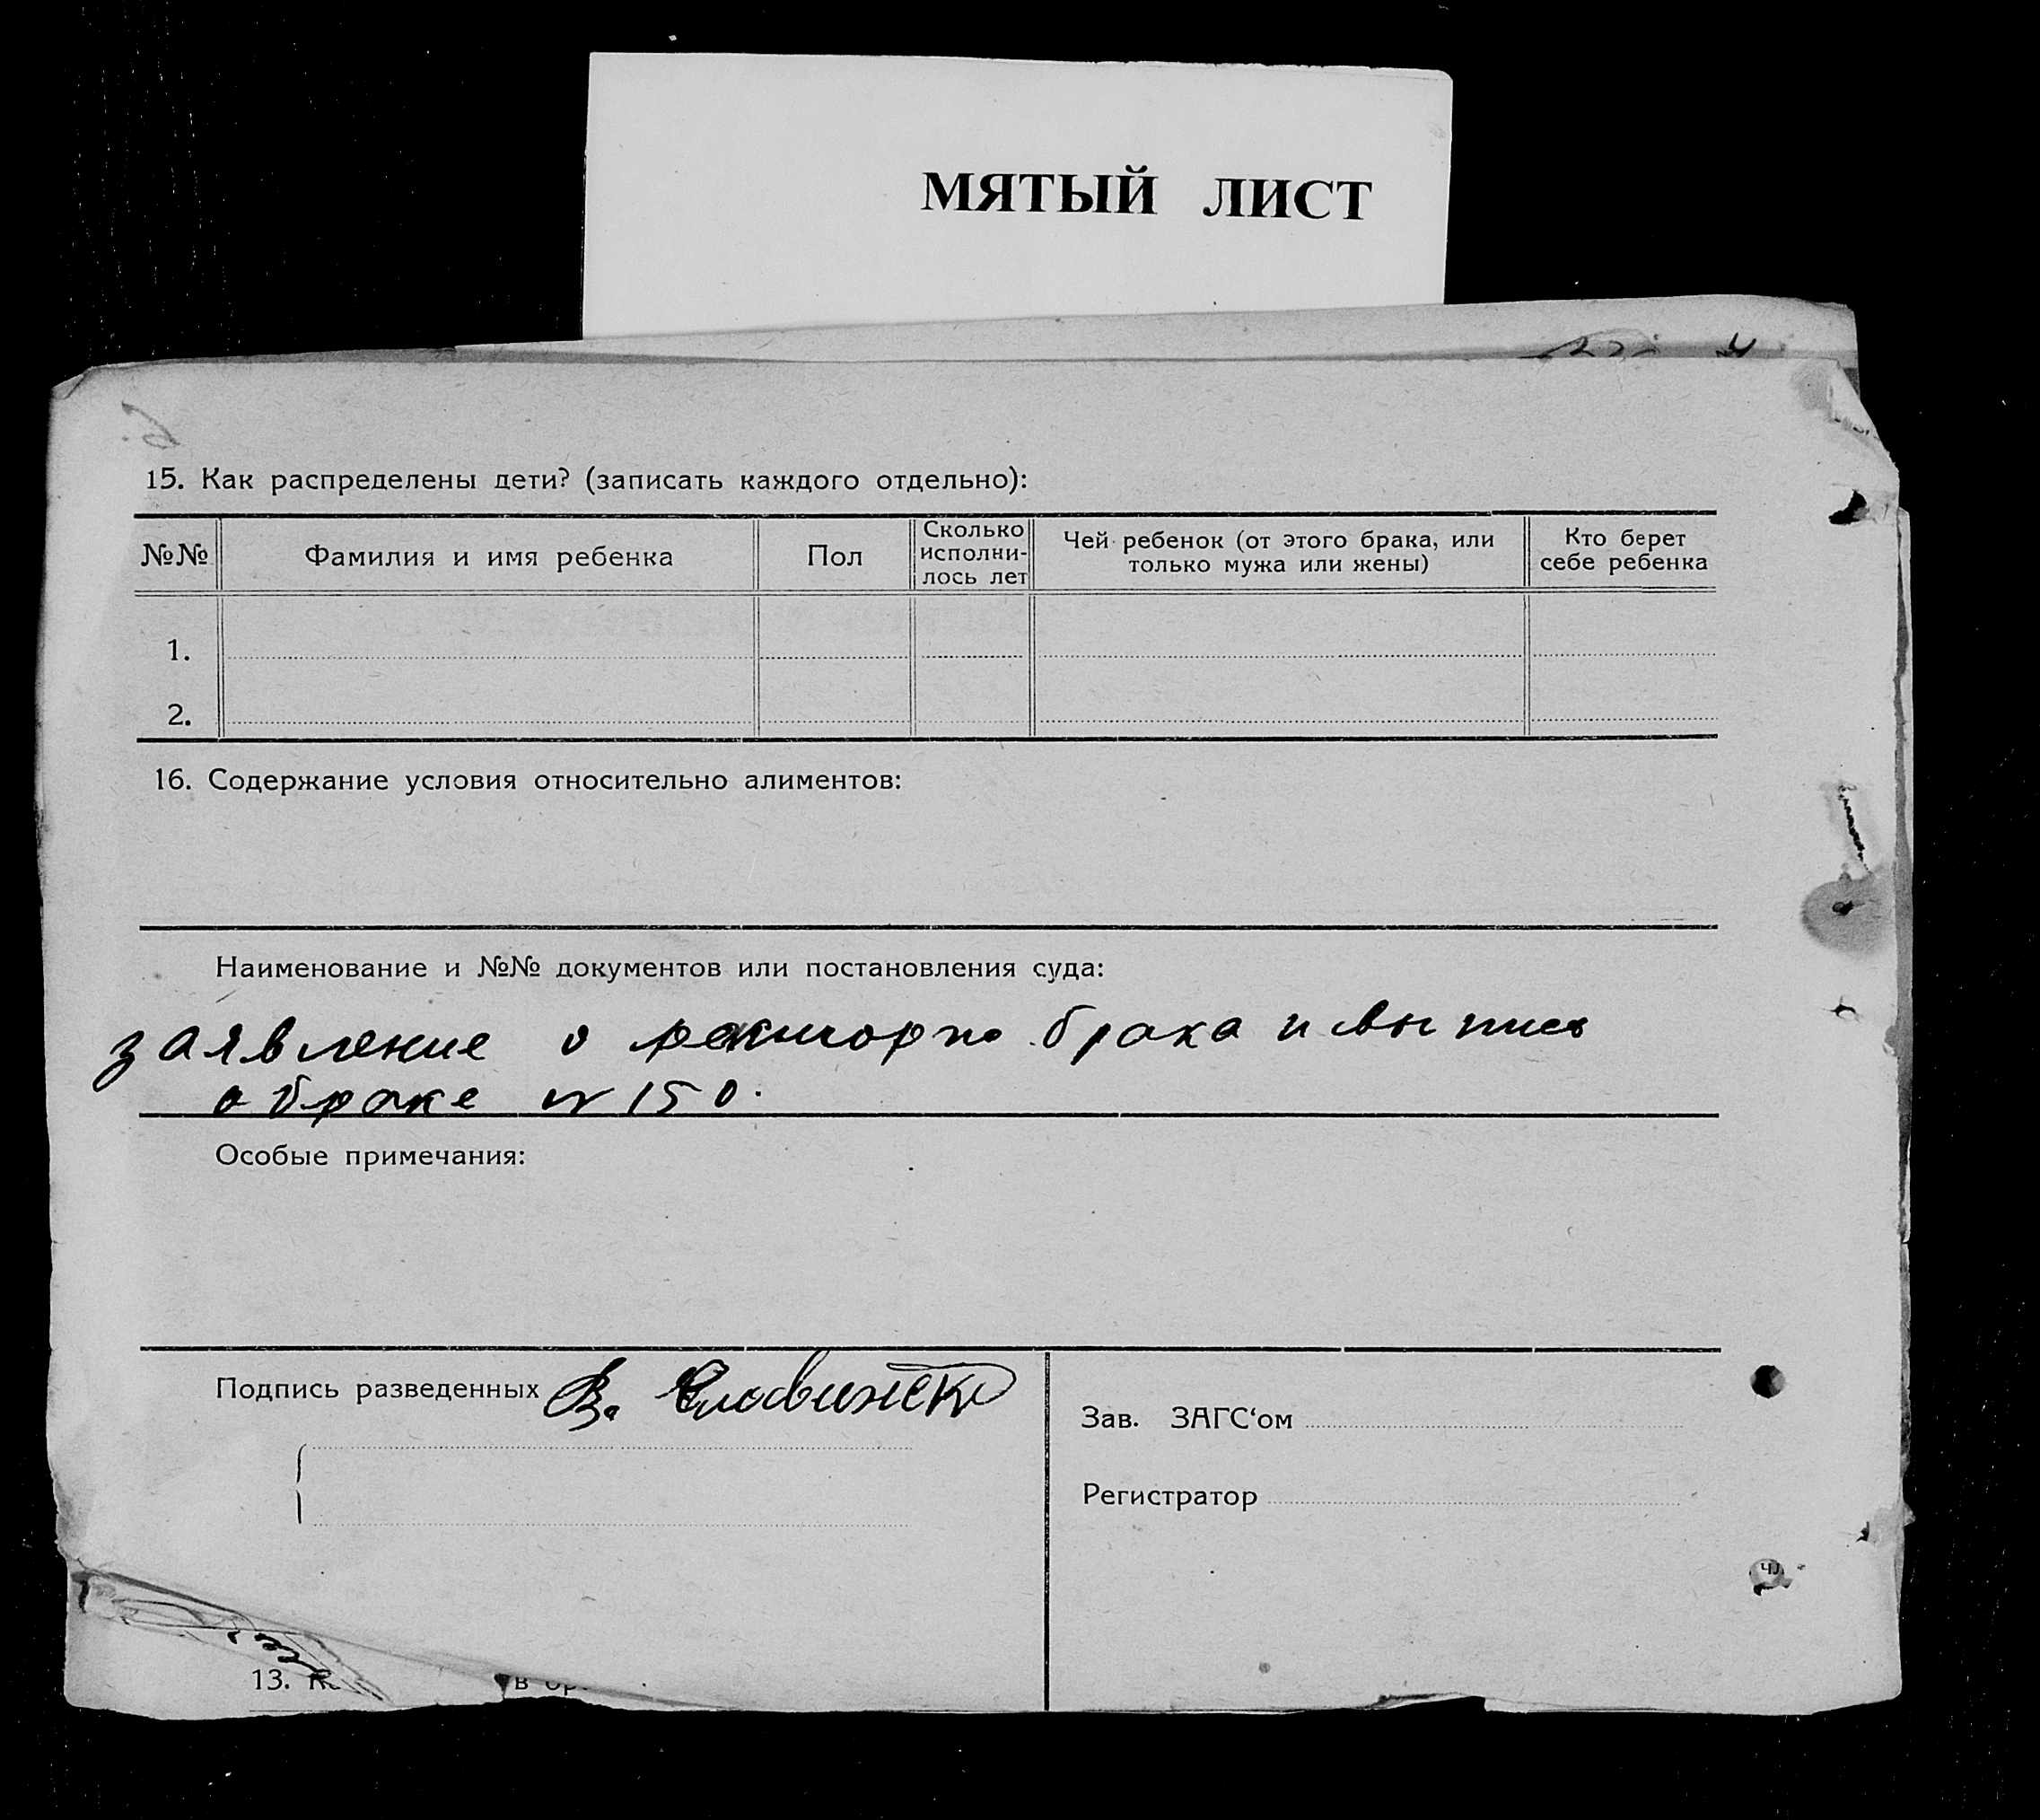 МЯТЫЙ ЛИСТ
15. Как распределены дети? (записать каждого отдельно):
№№ Фамилия и имя ребенка Пол Сколько исполни-лось лет Чей ребенок (от этого брака, или только мужа или жены) Кто берет себе ребенка
1.
2.
16. Содержание условия относительно алиментов:
Наименование и №№ документов или постановления суда:
заявление о брака и выпись
о браке № 150.
Особые примечания:
Подпись разведенных В.
Зав. ЗАГС‘ом
Регистратор
13. в